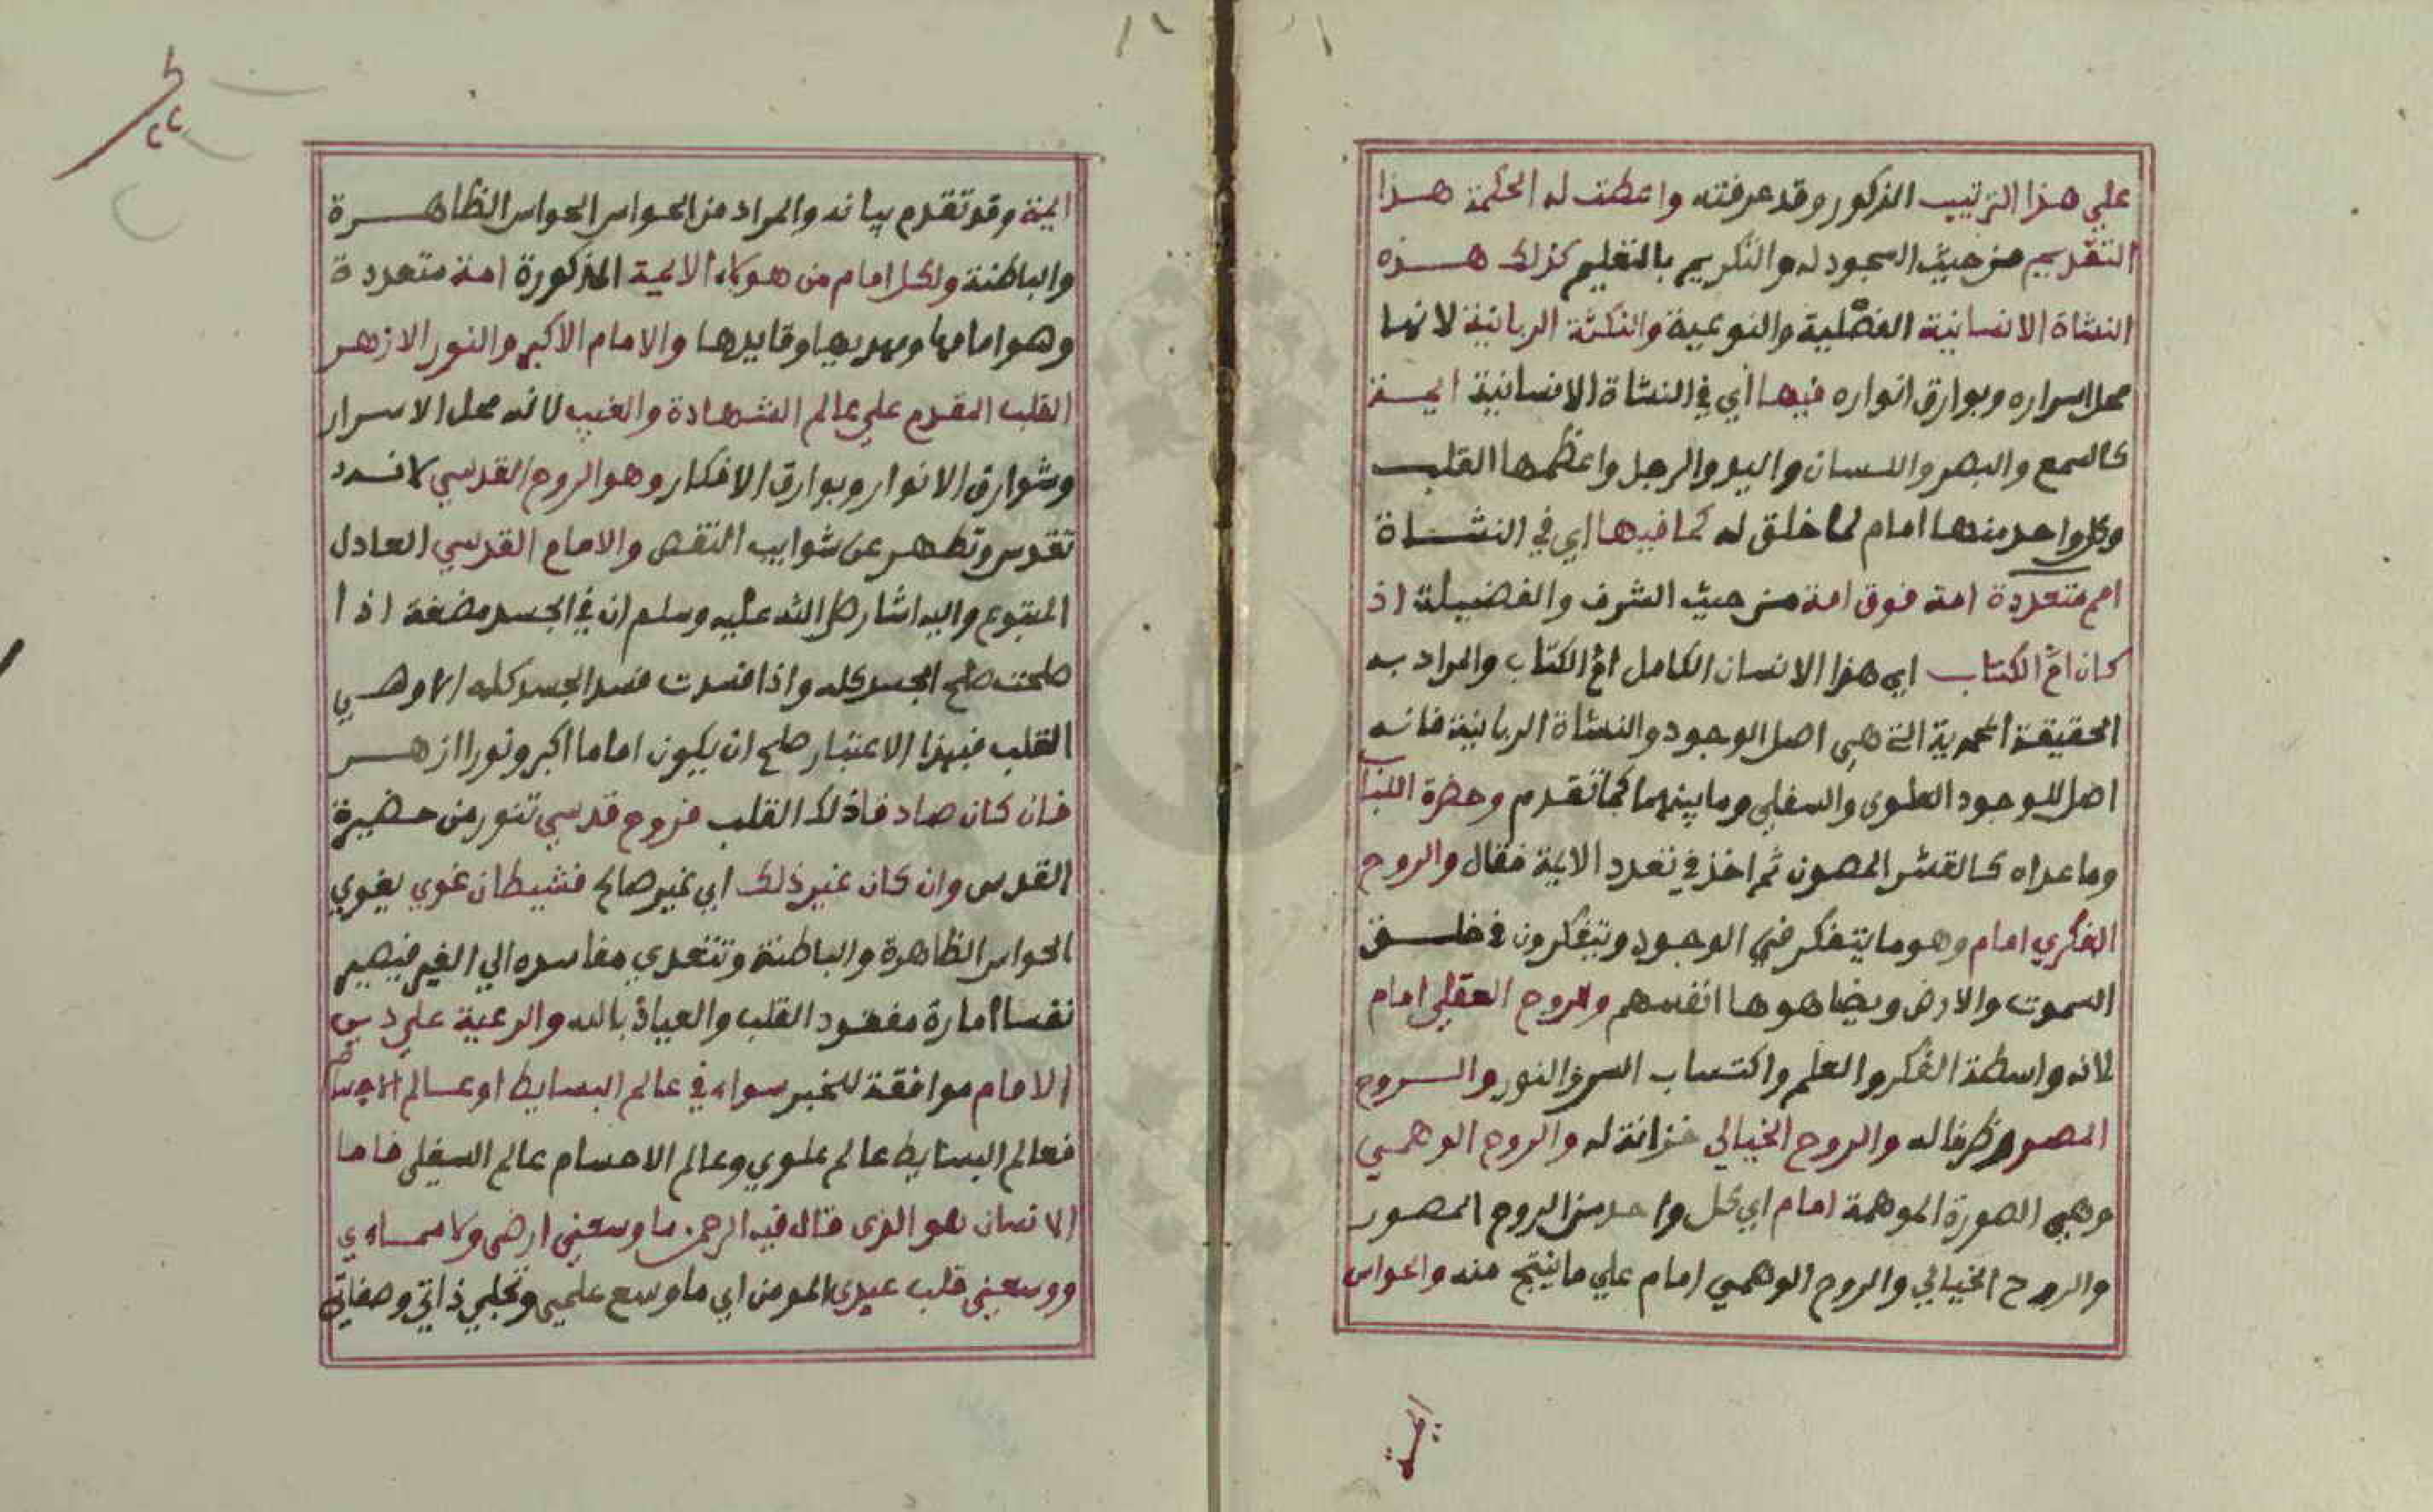 علي هذا الترتيب المذكور وقد عرفته واعطت له الحكمة هذا
التقديم من حيث السجود له والتكريم بالتعليم كذلك هذه
النشاة الانسانية الفضلية والنوعية والنكتة الربانية لانها
محل اسراره وبوارق انواره فيها أي في النشاة الانسانية ايمة
كالسمع والبصر واللسان واليد والرجل واعظمها القلب
وكل واحد منها امام لما خلق له كما فيها اي في النشاة
امم متعددة امة فوق امة من حيث الشرف والفضيلة اذ
كان امّ الكتاب اي هذا الانسان الكامل امّ الكتاب والمراد به
الحقيقة المحمدية التي هي اصل الوجود والنشاة الربانية فانه
اصل للوجود العلوى والسفلي وما بينهما كما تقدم وحضرة اللباب
وما عداه كالقشر المصون ثم اخذ في تعدد الايمة فقال والروح
الفكري امام وهو ما يتفكر في الوجود ويتفكرون في خلق
السموت والارض ويضاهوها انفسهم والروح العقلي امام
لانه واسطة الفكر والعلم واكتساب السر والنور والروح
المصور ظرفا له والروح الخيالي خزانة له والروح الوهمي
وهي الصورة الموهمة امام اي كل واحد من الروح المصور
والروح الخيالي والروح الوهمي امام علي ما ينتج منه والحواس
ايمة
ايمة وقد تقدم بيانه والمراد من الحواس الحواس الظاهرة
والباطنة ولكل امام من هولاء الايمة المذكورة امة متعددة
وهو امامها ومهديها وقايدها والامام الاكبر والنور الازهر
القلب المقدم علي عالم الشهادة والغيب لانه محل الاسرار
وشوارق الانوار وبوارق الافكار وهو الروح القدسي لانه قد
تقدس وتطهر عن شوايب النقص والامام القدسي العادل
المتبوع واليه اشار صلى الله عليه وسلم ان في الجسد مضغة اذا
صلحت صلح الجسد كله واذا فسدت فسد الجسد كله الا وهي
القلب فبهذا الاعتبار صلح ان يكون اماما اكبر ونورا ازهر
فان كان صادفا ذلك القلب فروح قدسي تنور من حضيرة
القدس وان كان غير ذلك اي غير صالح فشيطان غوي يغوي
الحواس الظاهرة والباطنة وتتعدي مفاسده الي الغير فيصير
نفسا امارة مفقود القلب والعياذ بالله والرعية علي دين
الامام موافقة للخبر سواء في عالم البسايط او عالم الاجسام
فعالم البسايط عالم علوي وعالم الاجسام عالم السفلي فاما
الانسان هو الذى قال فيه الرحمن ما وسعني ارضي ولا سماءي
ووسعني قلب عبدي المومن اي ما وسع علمي وتجلي ذاتي وصفاتي